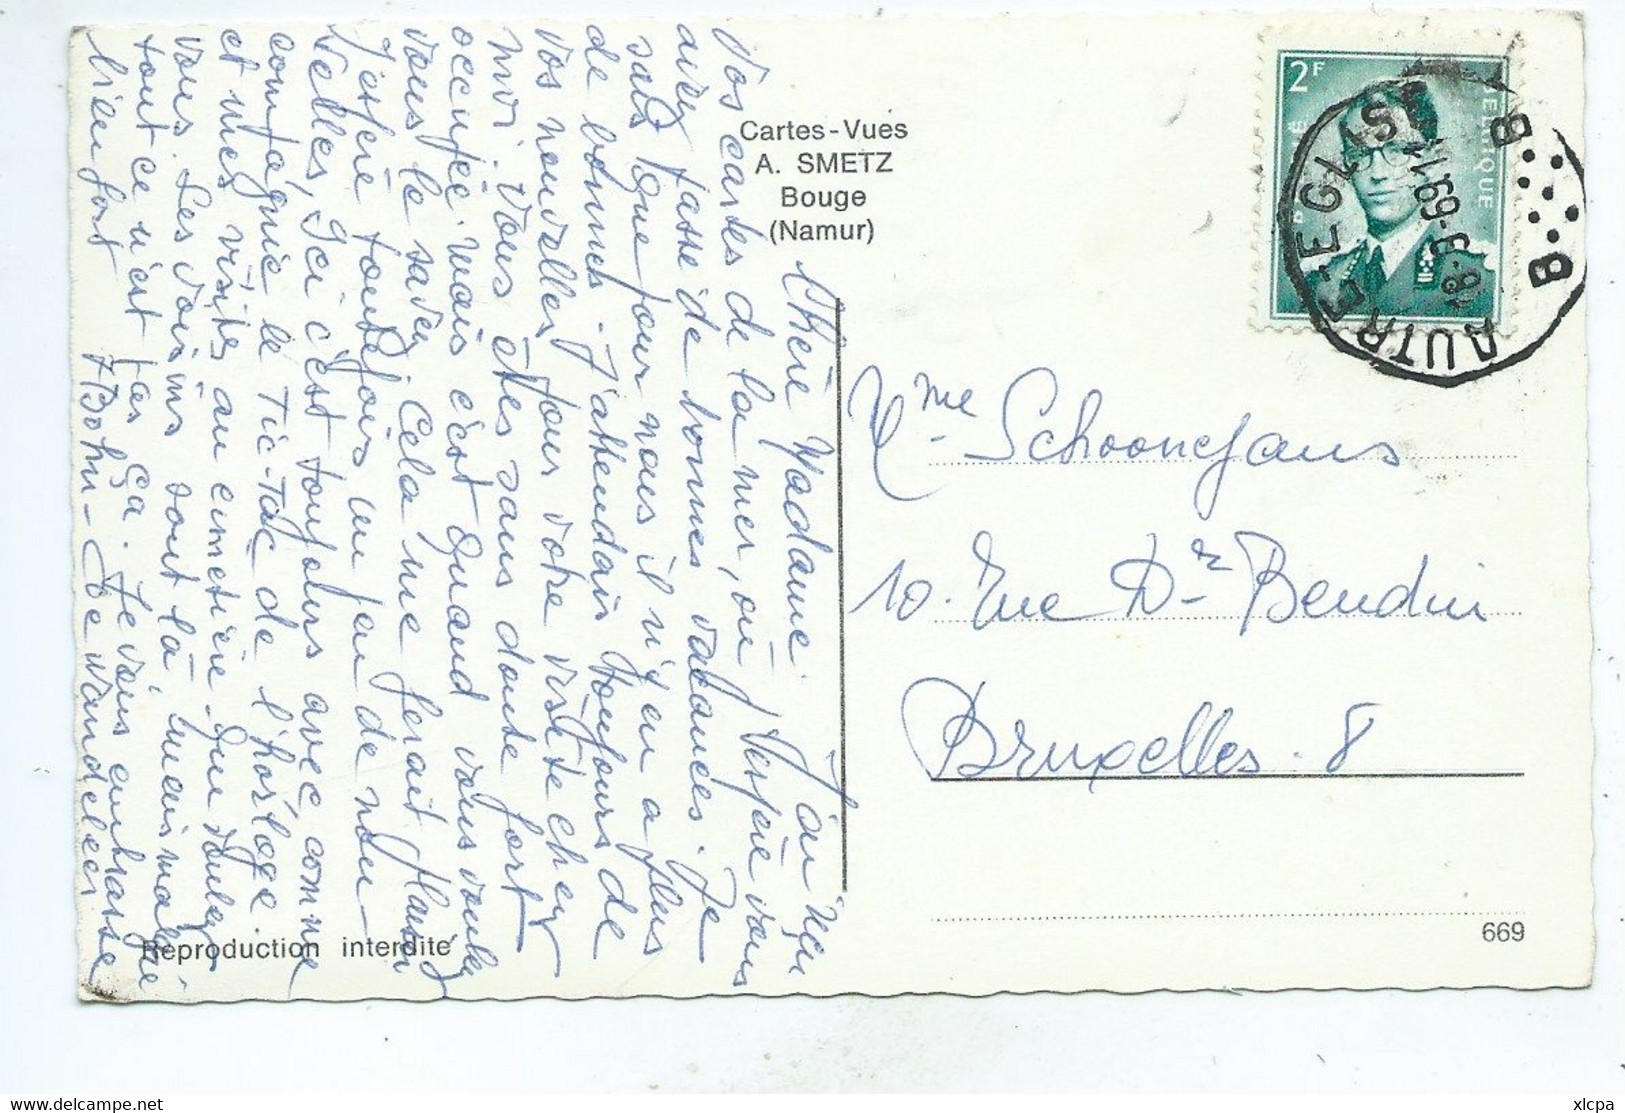 Cartes-Vues
A. SMETZ
Bouge
(Namur)
2F
BELGIQUE
AUTRE-EGLISE
B B
18-3-69-1
Chère Madame. J'ai reçu
vos cartes de la mer, où j'espère vous
avez passé de bonnes vacances. Je
sais que pour nous il n'y en a plus
de bonnes. J'attendais toujours de
vos nouvelles pour votre visite chez
moi. Vous êtes sans doute fort
occupée mais c'est quand vous voulez
vous le savez. Cela me ferait plaisir
J'espère toutefois un peu de nou-
velles, Ici c'est toujours avec comme
compagnie le Tic-Tac de l'horloge.
et mes visites au cimetière. Que voulez
vous. Les voisins sont là, mais malgré
tout ce n'est pas ça. Je vous embrasse
bien fort
Mme Schoonejans
10. Rue Dr Bendin
Bruxelles. 8
Reproduction interdite
669
xlcpa